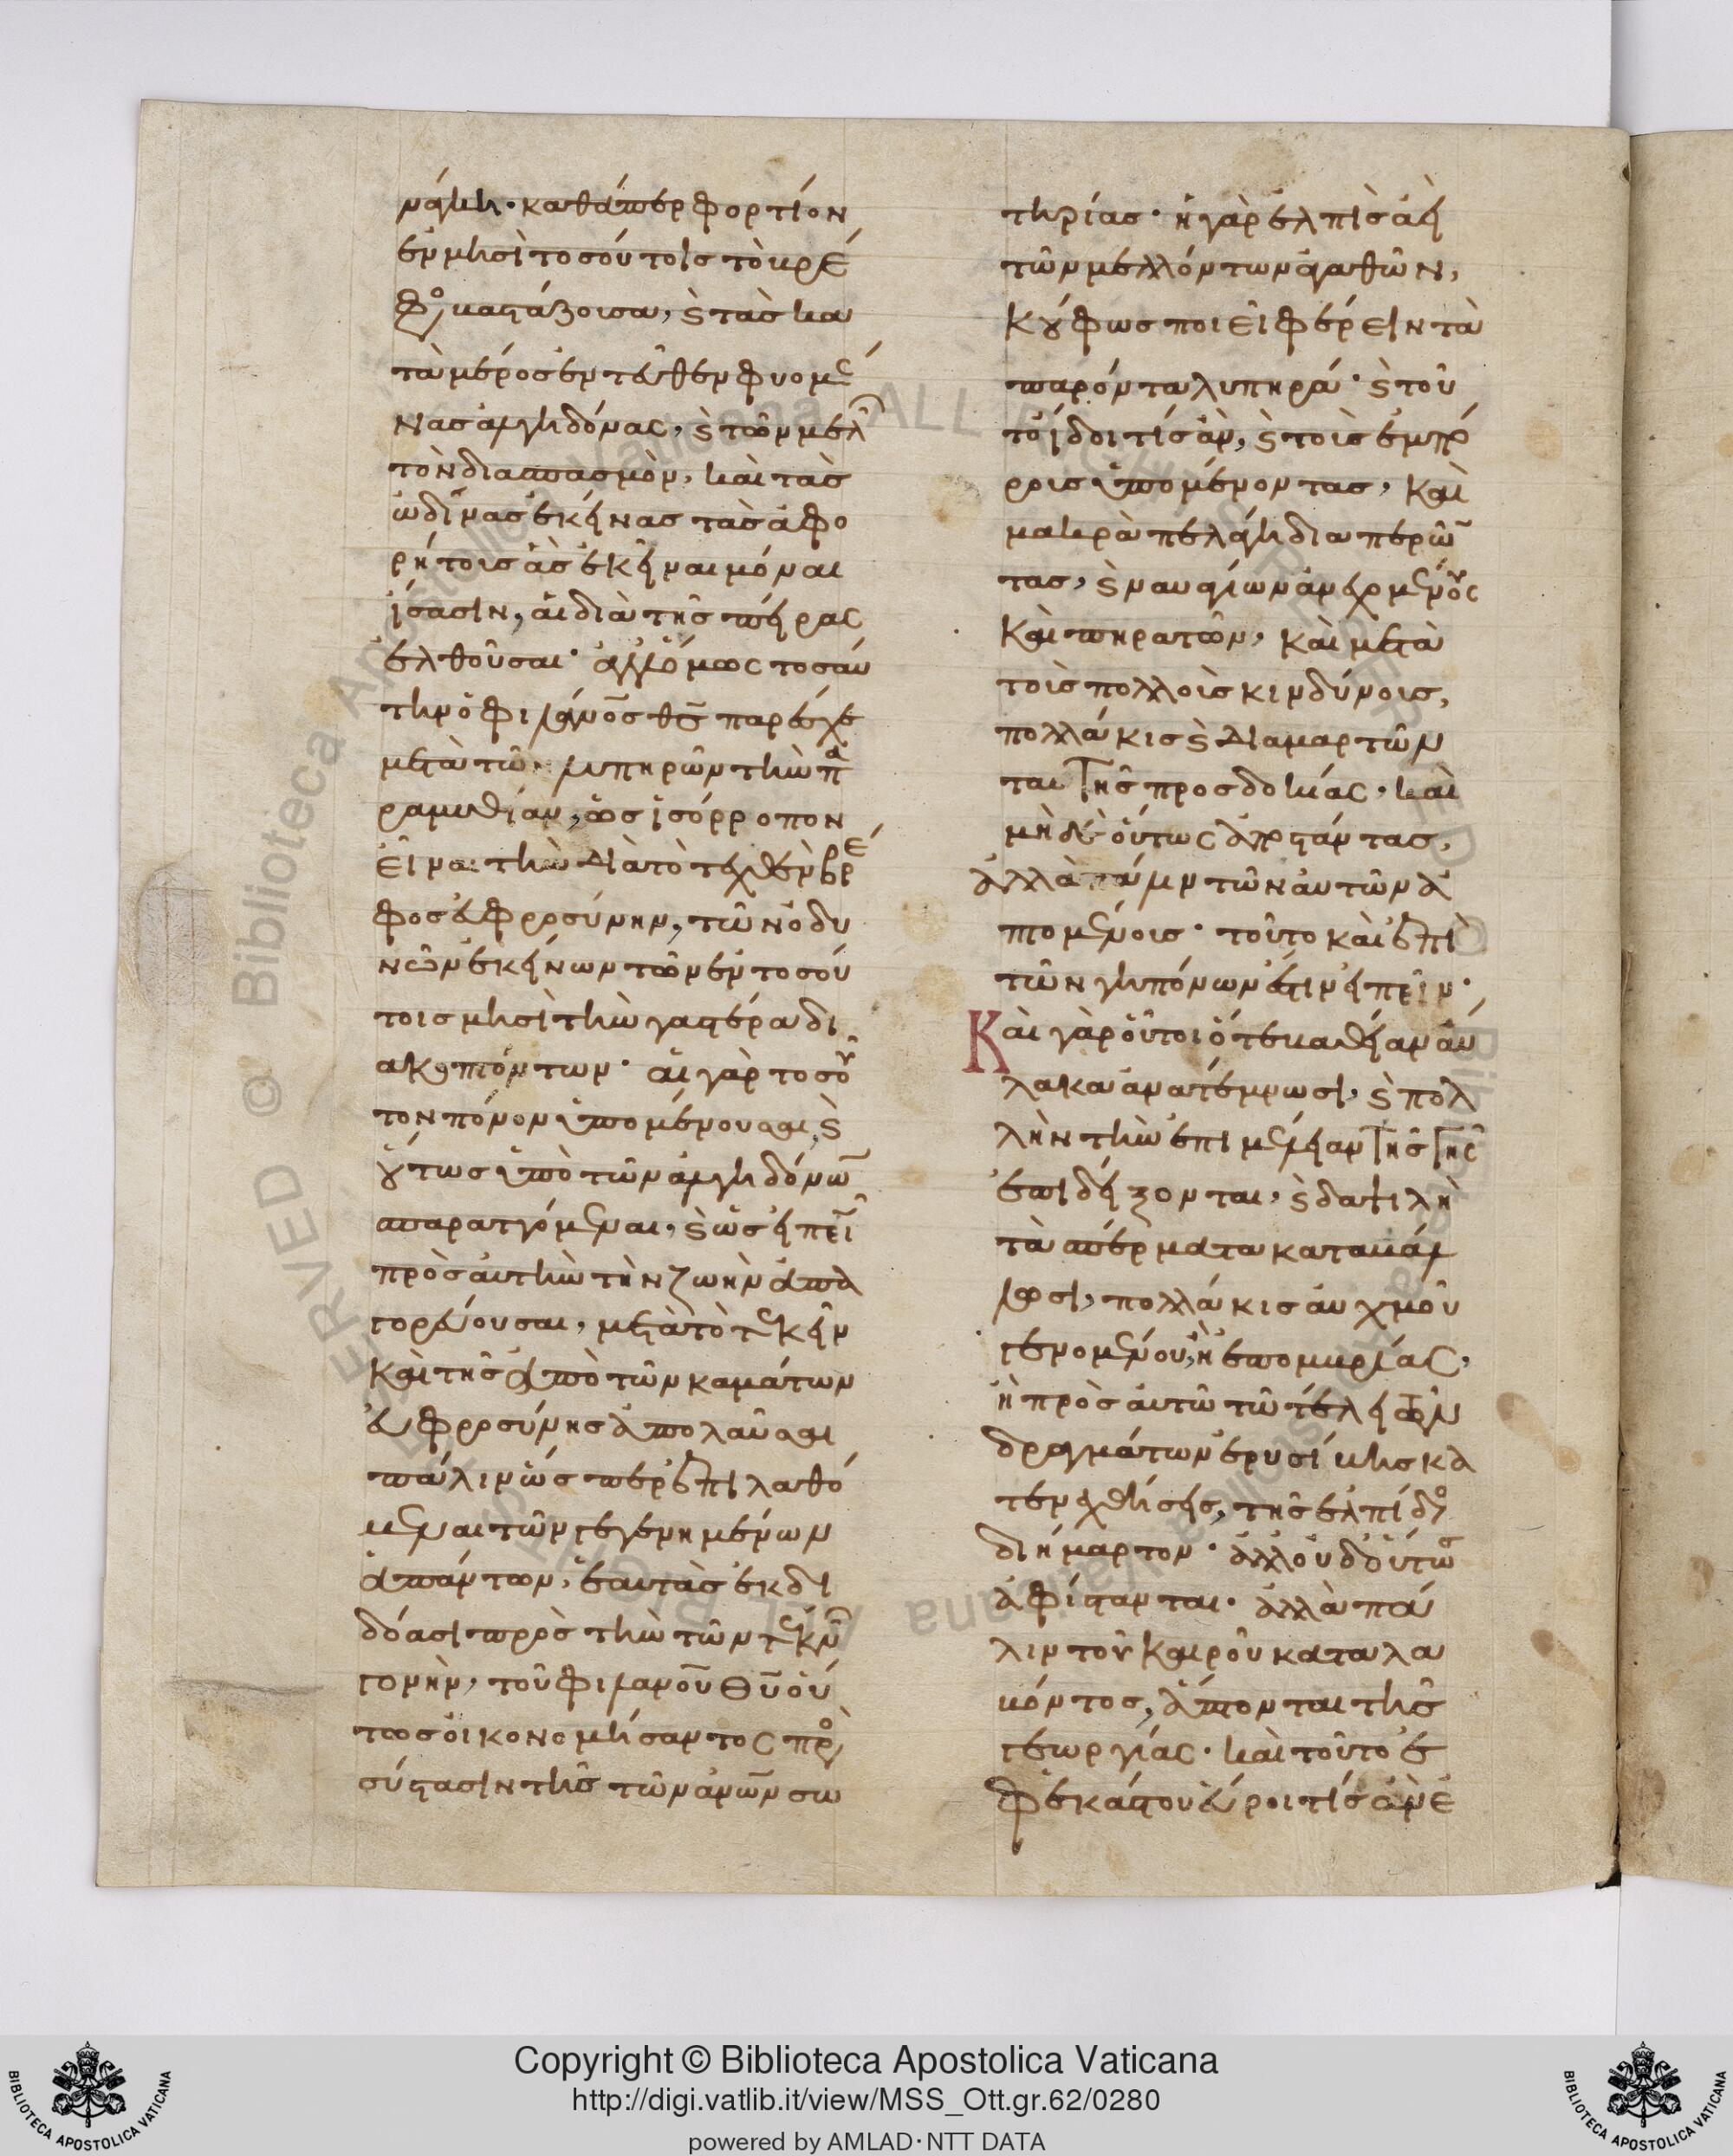 νάγκη· καθάπερ φορτίον
ἐν μησὶ τοσούτοις τὸ βρέ
φο βαστάζουσα, καὶ τὰς κα
τὰ μέρος ἐντεῦθεν φυομέ
νας ἀλγηδόνας, καὶ τῶν μελ
τὸν διασπασμὸν, καὶ τὰς
ὠδῖνας ἐκείνας τὰς ἀφο
ρήτοις ἃς ἐκεῖναι μόναι
ἴσασιν, αἱ διὰ τῆς πείρας
ἐλθοῦσαι· ἀλλ' ὅμως τοσαύ
την ὁ φιλανος θς παρέσχε
μετὰ τῶν λυπηρῶν τὴν πα
ραμυθίαν, ὡς ἰσόρροπον
εἶναι τὴν διὰ τὸ τεχθὲν βρέ
φος εὐφροσύνην, τῶν ὀδυ
νῶν ἐκείνων τῶν ἐν τοσού
τοις μησὶ τὴν γαστέρα δι
ακοπτόντων· αἱ γὰρ τοσοῦ
τον πόνον ὑπομένουσαι, καὶ
οὕτως ὑπὸ τῶν ἀλγηδόνω
σπαρατγόμεναι, καὶ ὡς εἰπεῖ
πρὸς αὐτὴν τὴν ζωὴν ἀπα
γορεύουσαι, μετὰ τὸ τεκεῖν
καὶ τῆς ἀπὸ τῶν καμάτων
εὐφροσύνης ἀπολαῦσαι
πάλιν ὥσπερ ἐπιλαθό
μεναι τῶν γεγενημένων
ἁπάντων, ἑαυτὰς ἐκδι
δόασι πρὸς τὴν τῶν τέκν
γονὴν, τοῦ φιλανου θυ οὕ
τως οἰκονομήσαντος προ
σύστασιν τῆς τῶν ἀνων σω
τηρίας· ἡ γὰρ ἐλπὶς ἀεὶ
τῶν μελλόντων ἀγαθῶν,
κούφως ποιεῖ φέρειν τὰ
παρόντα λυπηρά· καὶ τοῦ
το ἴδοι τίς ἂν, καὶ τοὶς ἐμπό
ροις ὑπομένοντας, καὶ
μακρὰ πελάγη διαπερῶ
τας, καὶ ναυαγίων ἀνεχομένους
καὶ πηρατῶν, καὶ μετὰ
τοὶς πολλοὶς κινδύνοις,
πολλάκις καὶ διαμαρτῶν
ται τῆς προσδοκίας· καὶ
μὴ δὲ οὕτως ἀποστάντας,
ἀλλὰ πάλιν τῶν αὐτῶν ἁ
πτομένοις· τοῦτο καὶ ἐπὶ
τῶν γηπόνων ἔστιν εἰπεῖν·
Καὶ γὰρ οὗτοι ὅτε βαθεῖαν αὔ
λακα ἀνατέμνωσι, καὶ πολ
λὴν τὴν ἐπιμέλειαν τῆς γῆς
ἐπιδείξονται, καὶ δαψιλῆ
τὰ σπέρματα καταβάλ
λωσι, πολλάκις αὐχμοῦ
γενομένου, ἢ ἐπομβρίας,
ἢ πρὸς αὐτῶ τῶ τέλει τῶν
δραγμάτων ἐρυσίβης κα
τενεχθείσης, τῆς ἐλπίδο
διήμαρτον· ἀλλ' οὐδ' οὕτως
ἀφίστανται· ἀλλὰ πά
λιν τοῦ καιροῦ καταλα
βόντος, ἅπτονται τῆς
γεωργίας· καὶ τοῦτο ἐ
φ' ἑκάστου εὕροι τίς ἂν ἐ